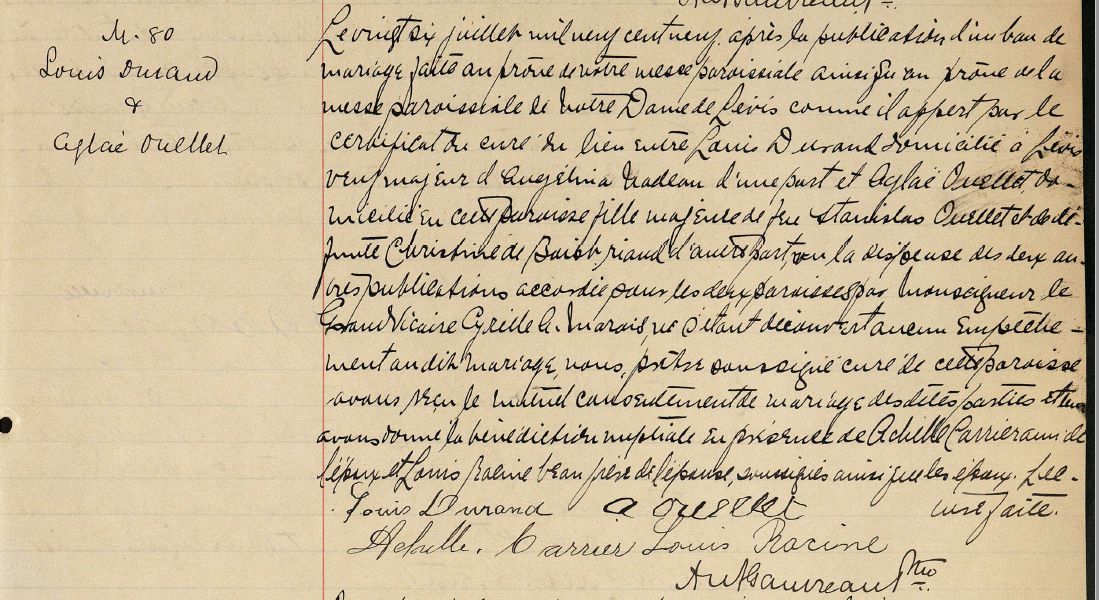 M. 80
Louis Durand
&
Aglaé Ouellet
Le vingt six juillet mil neuf cent neuf, après la publication d'un ban de
mariage faite au prône de notre messe paroissiale ainsi qu'au prône de la
messe paroissiale de Notre Dame de Lévis comme il appert par le
certificat du curé du lieu entre Louis Durand domicilié à Lévis
veuf majeur d'Angélina Nadeau d'une part et Aglaé Ouellet do-
micilié en cette paroisse fille majeure de feu Stanislas Ouellet et de dé-
funte Christine de Boisbriand d'autre part, vu la dispense des deux au-
tres publications accordée pour les deux paroisses par Monseigneur le
Grand Vicaire Cyrille A. Marois, ne s'étant découvert aucun empêche-
ment au dit mariage, nous, prêtre soussigné curé de cette paroisse
avons reçu le mutuel consentement de mariage des dites parties et leur
avons donné la bénédiction nuptiale en présence de Achille Carrier ami de
l'époux et Louis Racine beau frère de l'épouse, soussignés ainsi que les époux. Lec-
ture faite.
Louis Durand A Ouellet
Achille. Carrier Louis Racine
Ptre